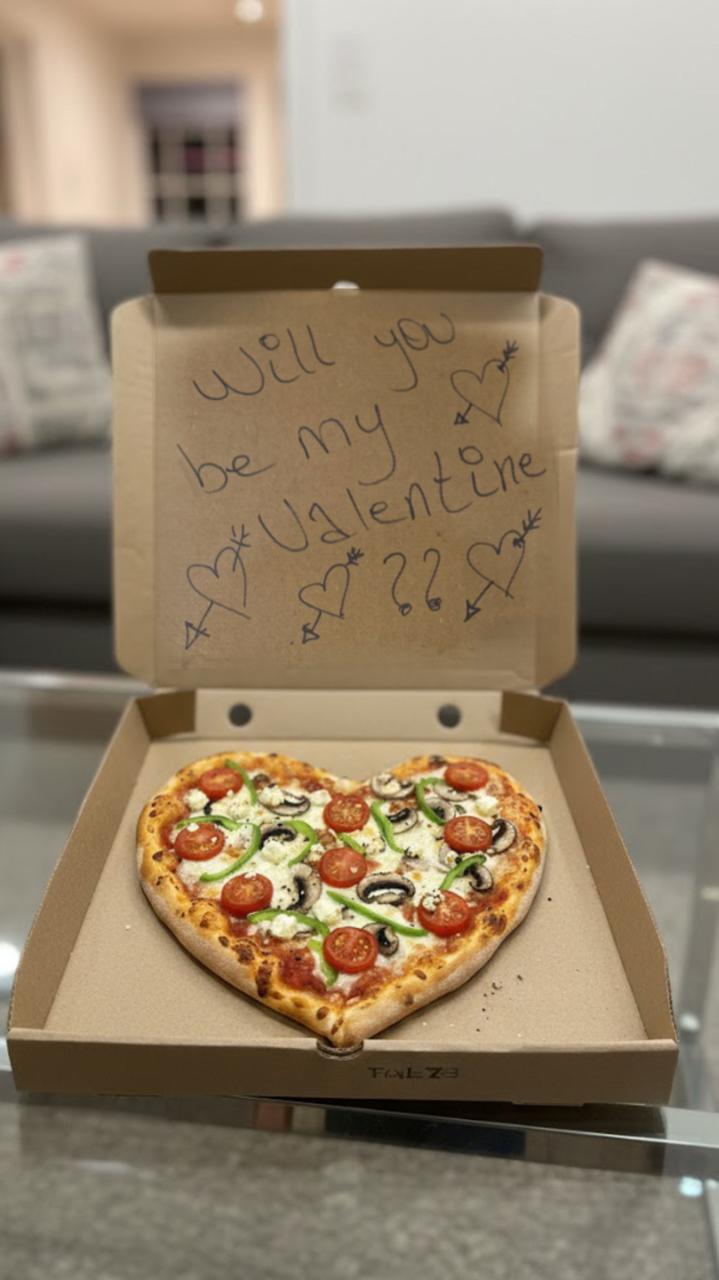 Will you
be my
Valentine
??